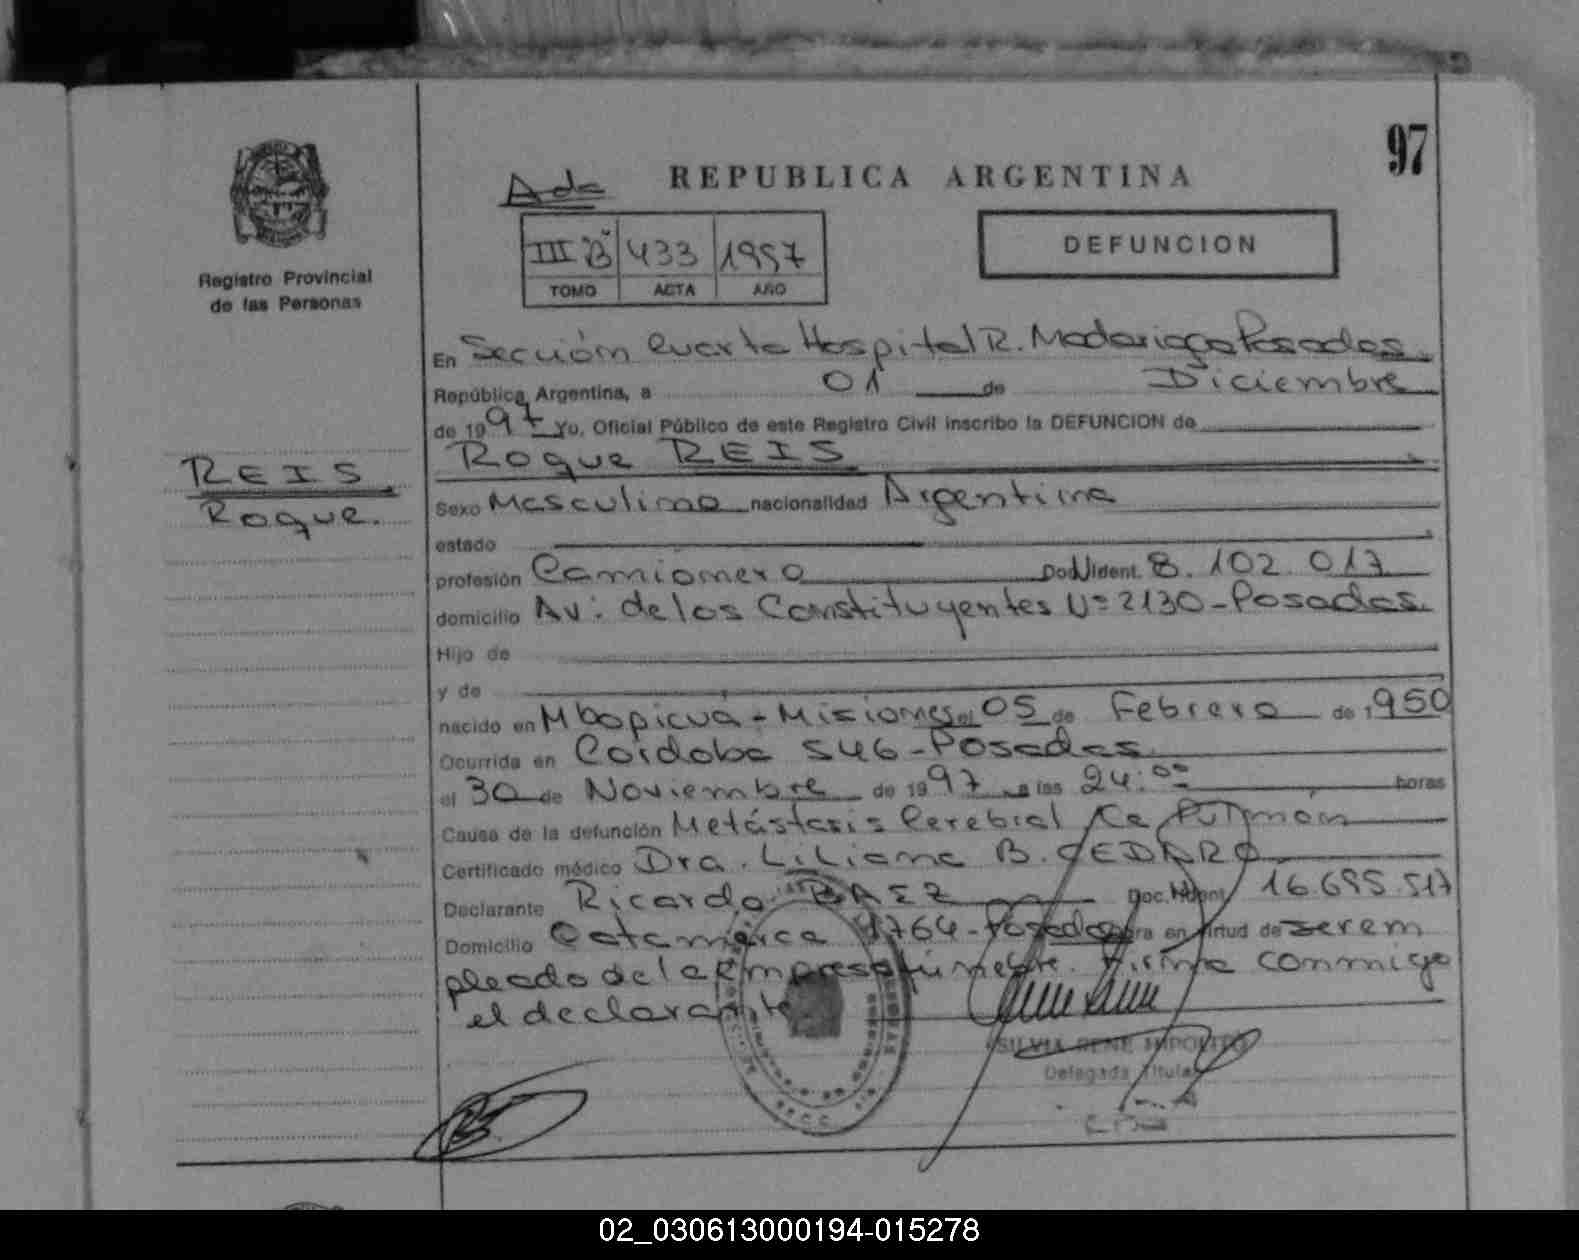 97
REPUBLICA ARGENTINA
Ada
III "B" 433 1997
TOMO ACTA AÑO
DEFUNCION
Registro Provincial
de las Personas
REIS
Roque.
En Sección Cuarta Hospital R. Madariaga Posadas.
República Argentina, a 01 de Diciembre
de 1997 Yo, Oficial Público de este Registro Civil inscribo la DEFUNCION de
Roque REIS
Sexo Masculino nacionalidad Argentina
estado
profesión Camionero Doc. Ident. 8.102.017
domicilio Av: de los Constituyentes Nº 2130-Posadas.
Hijo de
y de
nacido en Mbopicuá-Misiones el 05 de Febrero de 1950
Ocurrida en Córdoba 546-Posadas.
el 30 de Noviembre de 1997 a las 24:00 horas
Causa de la defunción Metástasis Cerebral Ca Pulmón
Certificado médico Dra. Liliana B. CEDARO.
Declarante Ricardo BAEZ Doc. Ident. 16.695.517
Domicilio Catamarca 1764-Posadas para en virtud de ser em
pleado de la Empresa fúnebre. Firma conmigo
el declarante
SILVIA RENE HIPOLITO
Delegada Titular
02_030613000194-015278